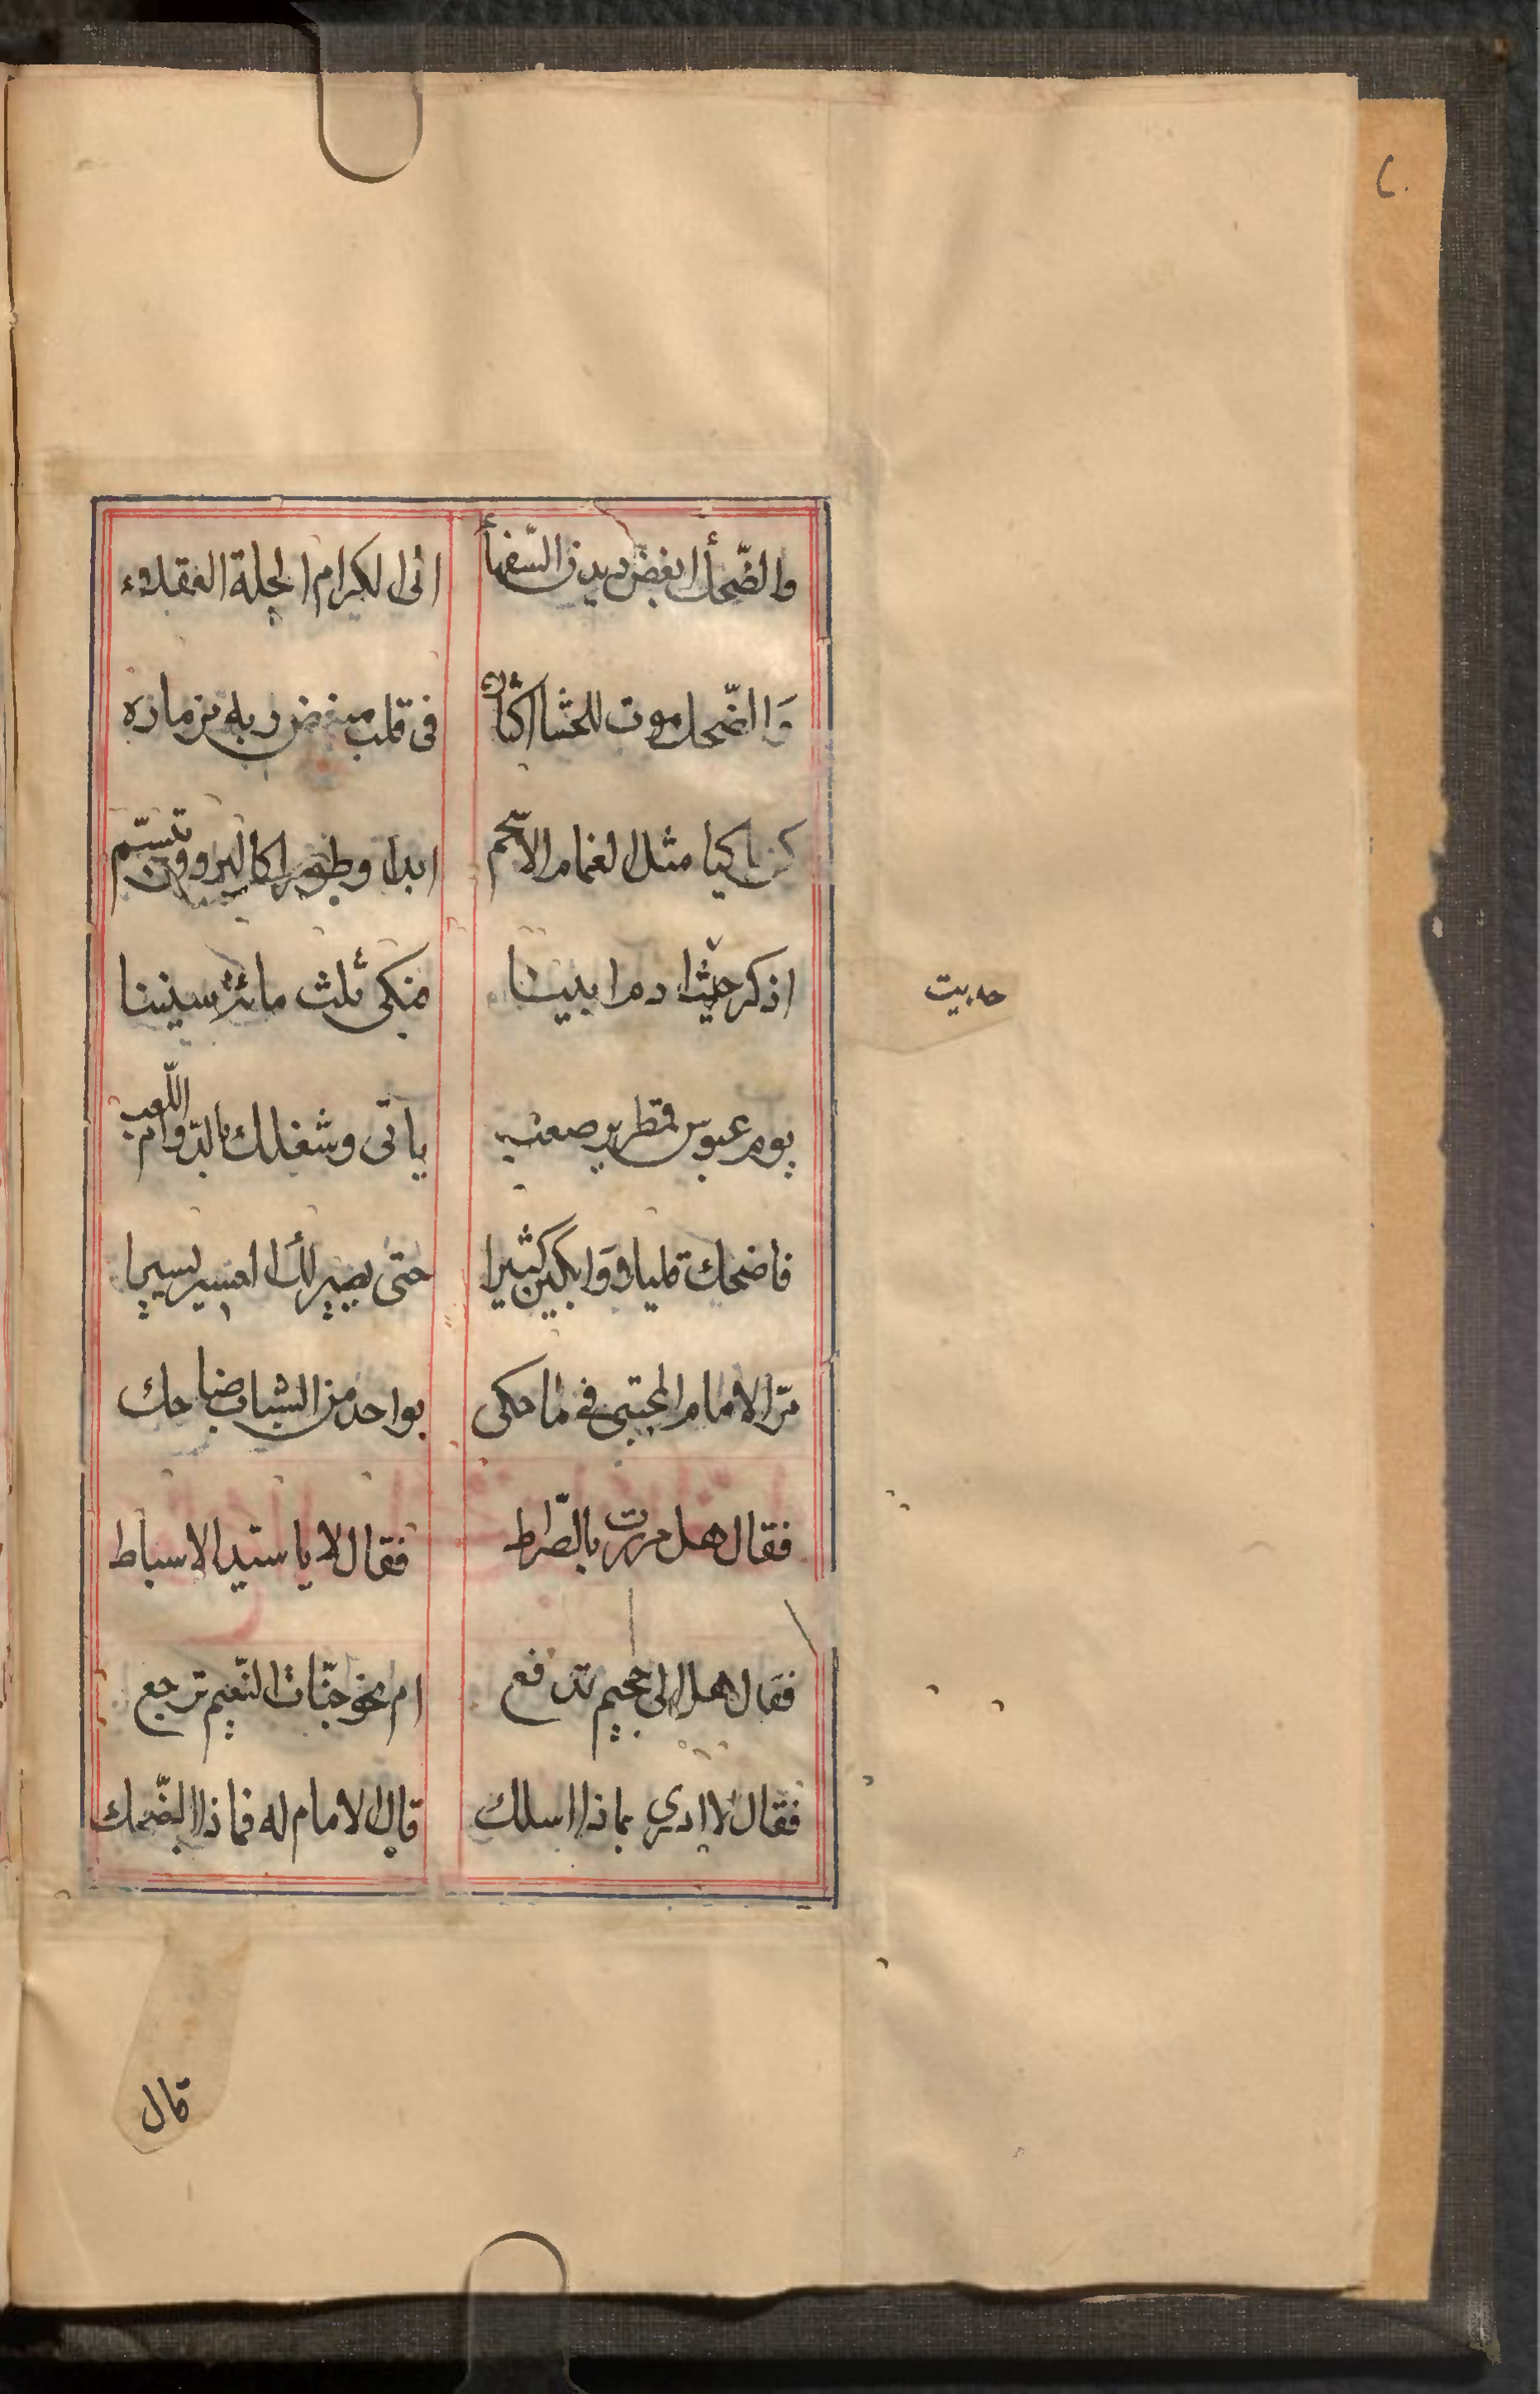 والضّحك ابغض ديدن السّفهاء انى الكرام الجلة العقلاء
وَالضّحك موت للحشا اكثاره فى قلب مبغض ربه مزماره
كن باكيا مثل الغمام الاسحم ابدا وطورا كالبروق تبسّم
اذكر حديثا دم ابينا منكى ثلث مائة سنينا
يوم عبوس قمطرير صعب ياتى وشغلك بالدّوام اللّعب
فاضحك قليلا وَابكين كثيرا حتى يصير لك العسير يسيرا
مرّ الامام المجتبى فى ما حكى بواحد من الشباب ضاحك
فقال هل مررت بالصّراط فقال لا يا سيّد الاسباط
فقال هل الى جحيم تدفع ام نحو جنّات النّعيم ترجع
فقال لا ادرى بماذا اسلك قال الامام له فماذا الضّحك
قال